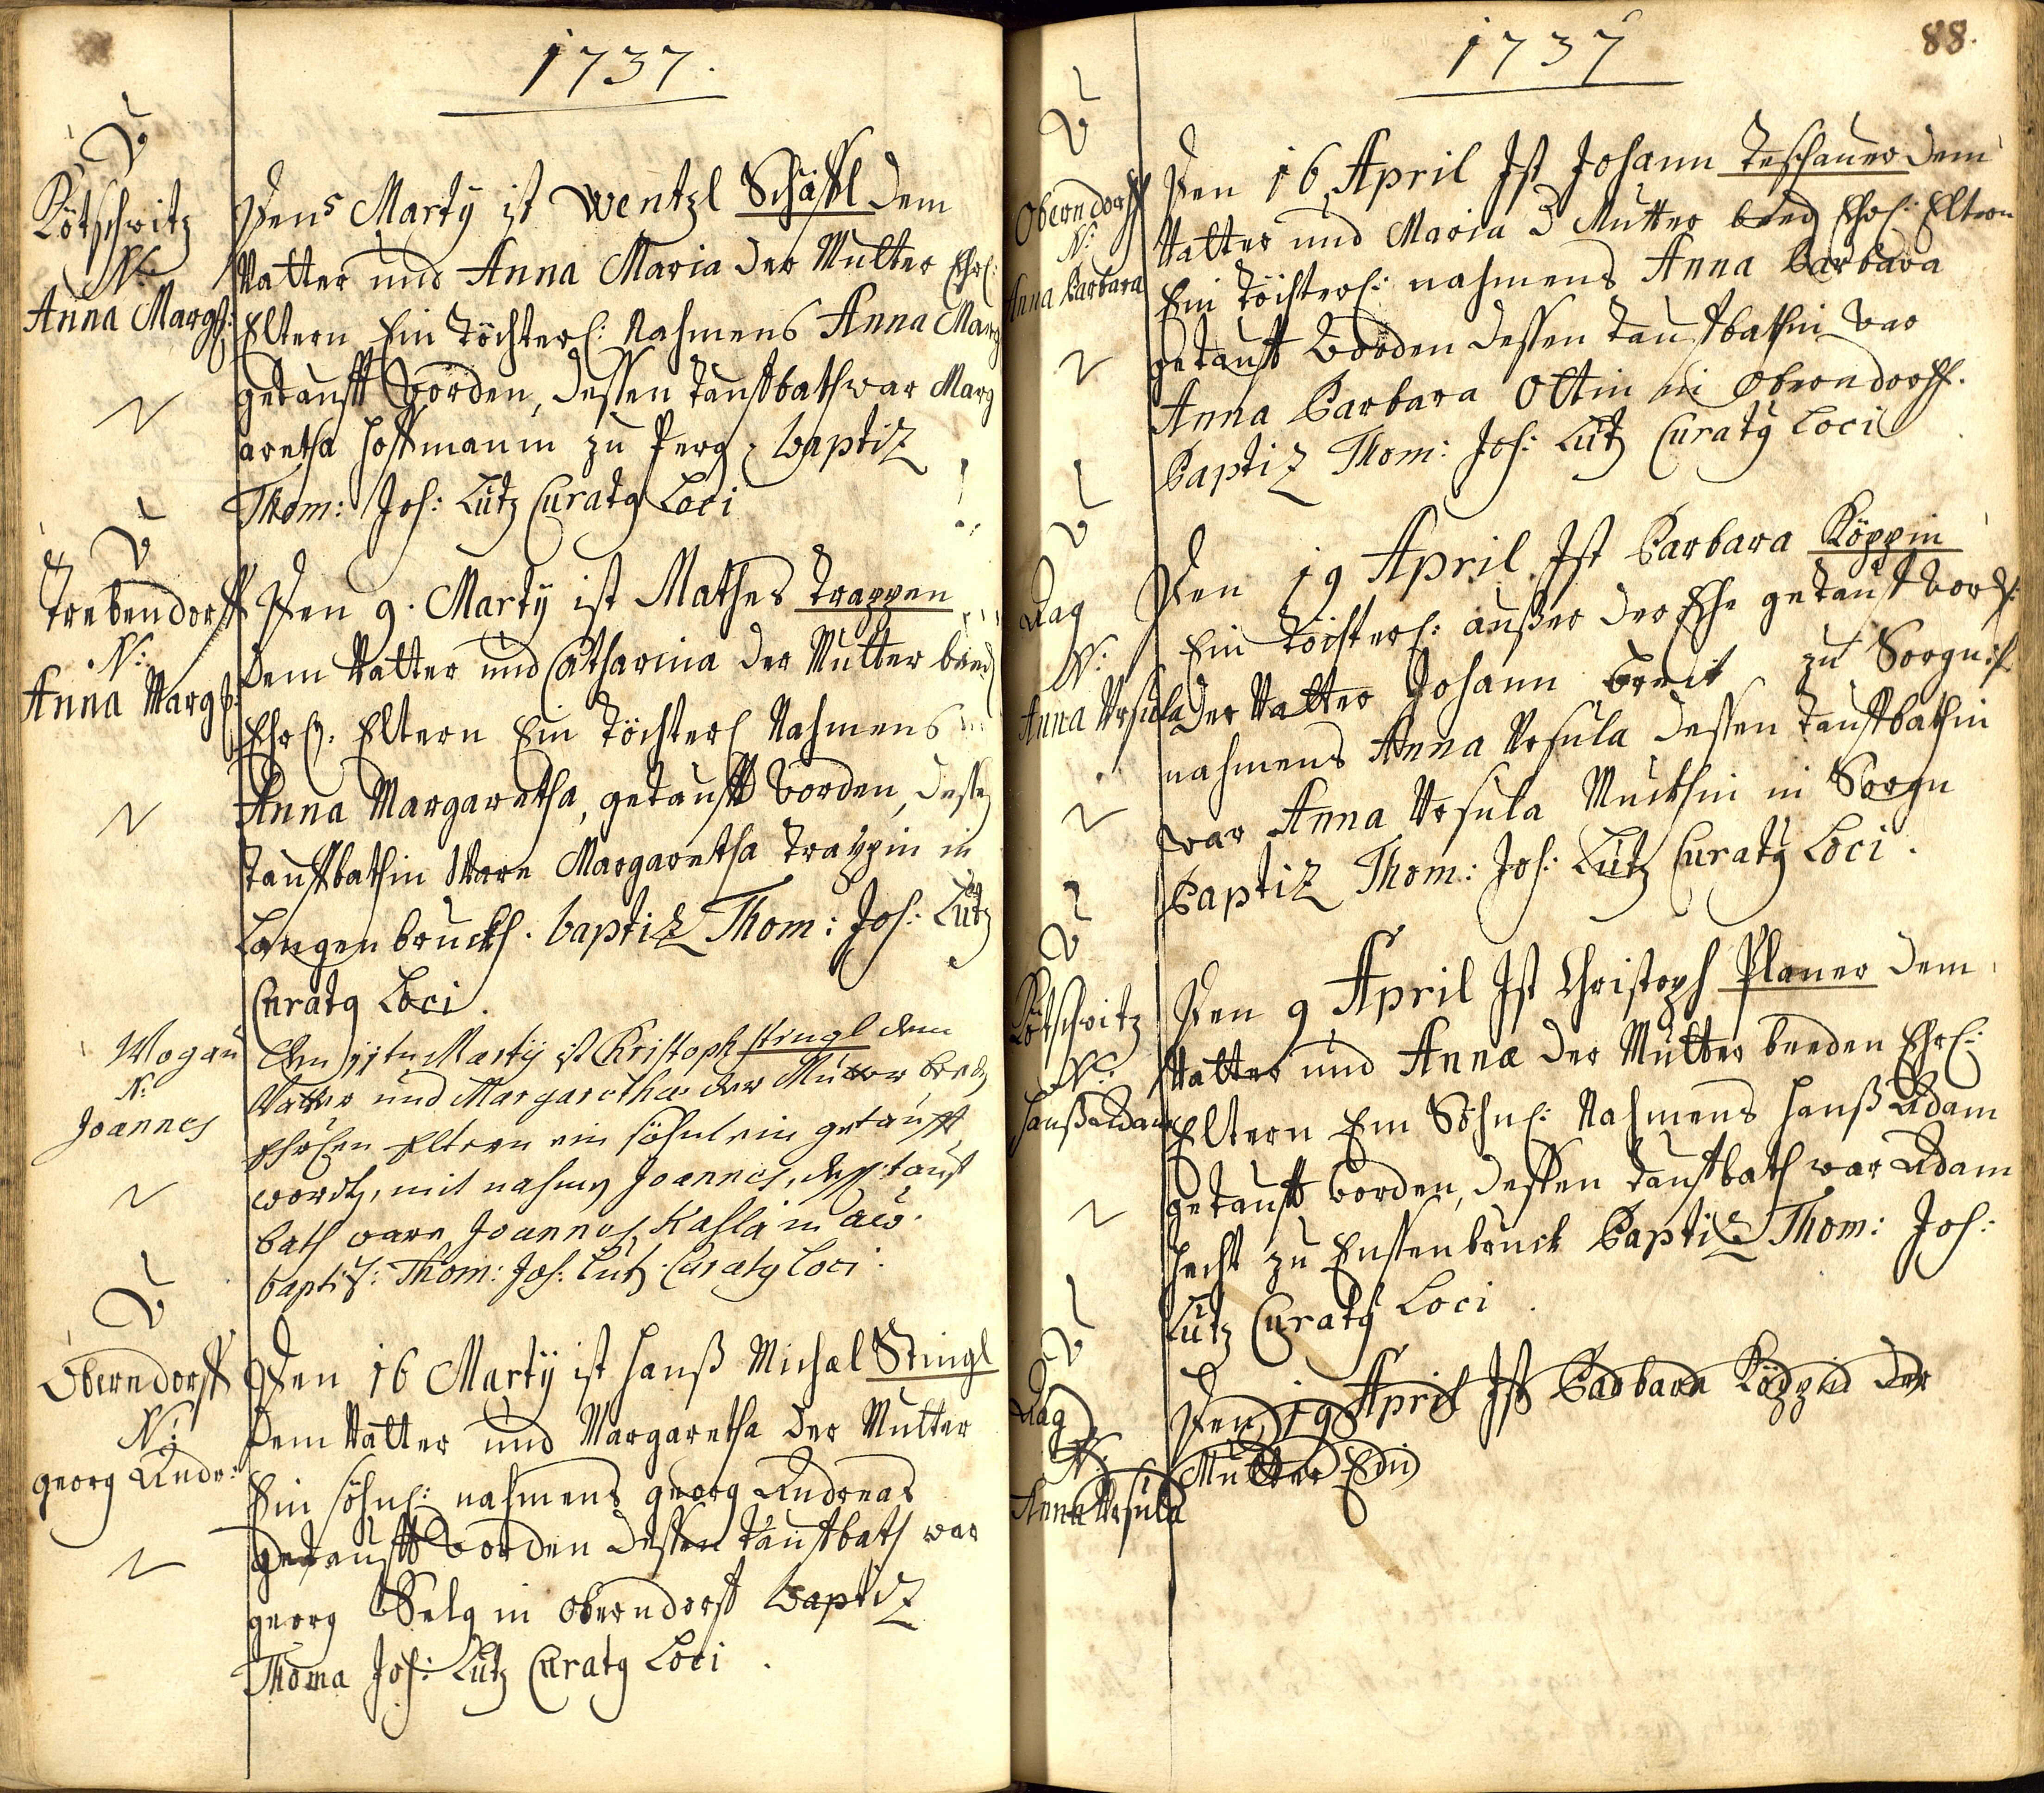 1737.
Kötschwitz
N:
Anna Margh:
Den 5 Martÿ ist Wentzl Schäffl dem
Vatter und Anna Maria der Mutter Ehrl:
Eltern Ein Töchterl: Nahmens Anna Marg
getaufft Worden, dessen Tauffbath war Marg
aretha Hoffmanin zu Perg, baptiz
Thom: Jos: Lutz Curatq Loci
Trebendorff
N:
Anna Margh:
Den 9. Martÿ ist Mathes Trappen
dem Vatter und Catharina der Mutter beed
Ehrl. Eltern Ein Töchterl Nahmens
Anna Margaretha, getaufft Worden, dessen
Tauffbathin Ware Margaretha Trappin in
Langenbruckh. baptiz Thom: Jos: Lutz
Curatq Loci.
Mogau
N:
Joannes
Den 11ten Martÿ ist Christoph Stingl dem
Vatter und Margaretha der Mutter beed
Ehrlichen Eltern ein söhnlein getaufft
worden, mit nahmen Joannes, dessen tauf
bath ware Joannes Kahla in aw.
baptiz: Thom: Jos: Lutz Curatq Loci.
Oberndorff
N:
georg Andr:
Den 16 Martÿ ist Hanß Michael Stingl
dem Vatter und Margaretha der Mutter
Ein söhnl: nahmens georg Andreas
getaufft Worden dessen Tauffbath war
georg Selg in oberndorff baptiz
Thoma Jos: Lutz Curatq Loci.
1737
88.
Oberndorff
N:
Anna Barbara
Den 16 April Ist Johann Teschauer dem
Vatter und Maria d Mutter beed Ehrl: Eltern
Ein Töchterl: nahmens Anna Barbara
getaufft Worden dessen Tauffbathin war
Anna Barbara Ottin in Oberndorff.
Baptiz Thom: Jos: Lutz Curatq Loci
Aag
N:
Anna Ursula
Den 19 April Ist Barbara Köppin
Ein Töchterl: außer der Ehe getaufft word:
der Vatter Johann breit zu Sorgn
nahmens Anna Ursula dessen Tauffbathin
war Anna Ursula Muckhin in Sorgn
Baptiz Thom: Jos: Lutz Curatq Loci.
Kötschwitz
N:
Hanß Adam
Den 9 April Ist Christoph Planer dem
Vatter und Anna der Mutter beeden Ehrl:
Eltern Ein Söhnl: Nahmens Hanß Adam
getaufft worden, dessen Tauffbath war Adam
Hecht zu Ensenbruck Baptiz Thom: Jos:
Lutz Curatq Loci.
Aag
N:
Anna Ursula
Den 19 April Ist Barbara Köppin der
Mutter Ein